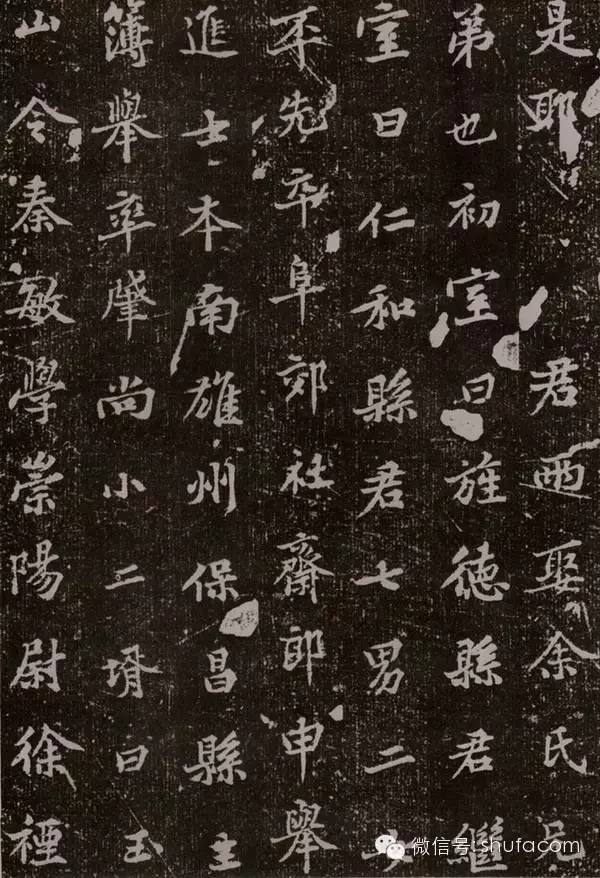 是耶君兩娶余氏兄
弟也初室曰旌德縣君繼
室曰仁和縣君七男二女
丕先卒阜郊社齋郎申舉
進士本南雄州保昌縣主
簿舉卒肇尚小二壻曰玉
山令秦敏學崇陽尉徐禋
微信号: shufacom